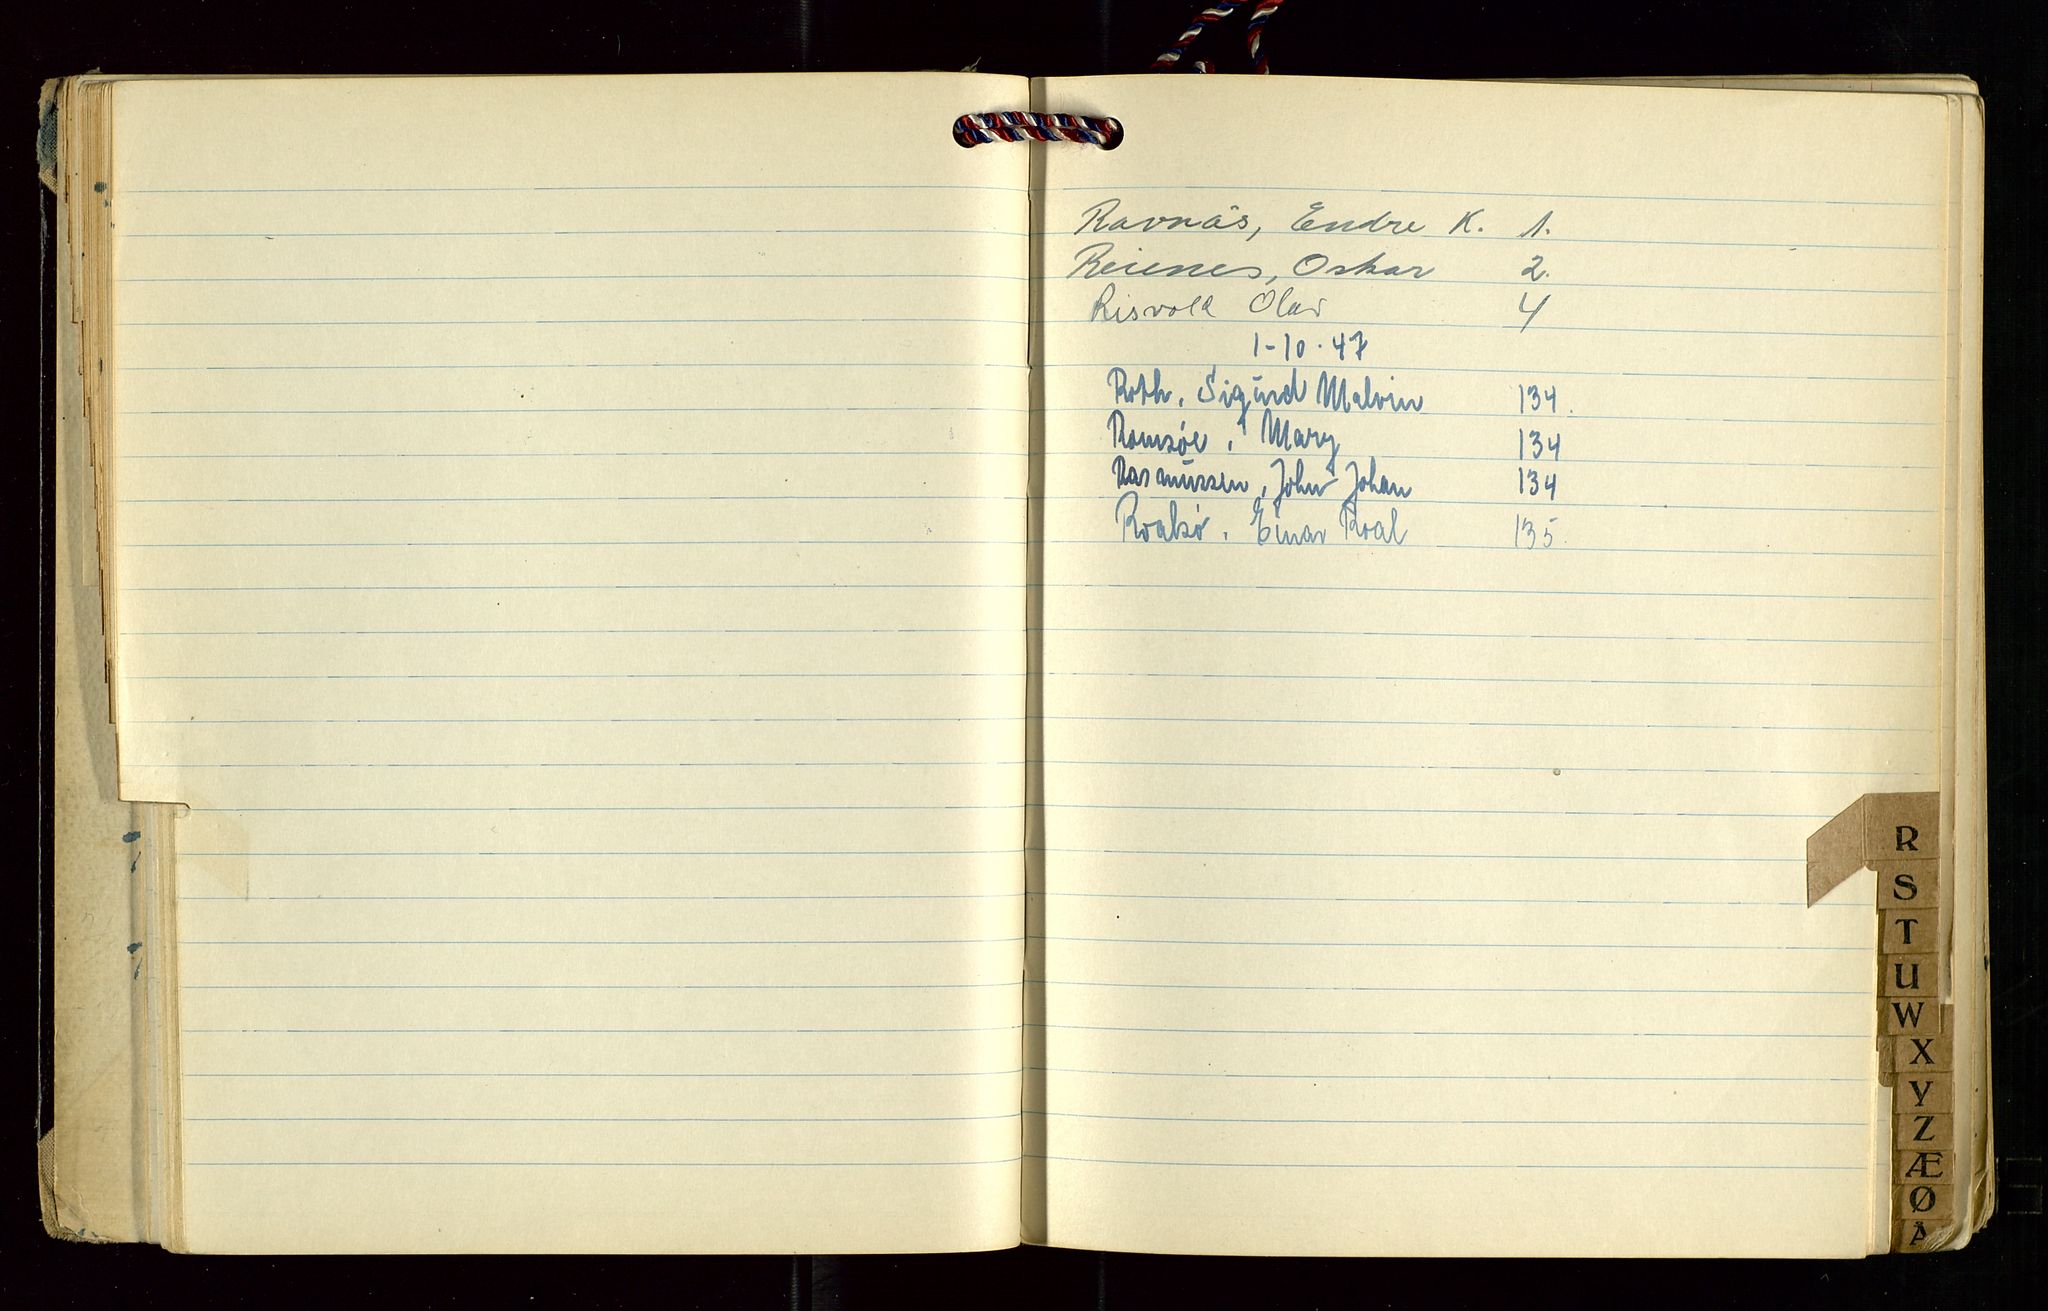 Ravnås, Endre K. 1.
Reienes, Oskar 2.
Risvold Olav 4
1-10-47
Roth, Sigurd Malvin 134.
Romsöe, Mary 134
Rasmussen, John Johan 134
Roalsö, Einar Roal 135.
R
S
T
U
W
X
Y
Z
Æ
Ø
Å